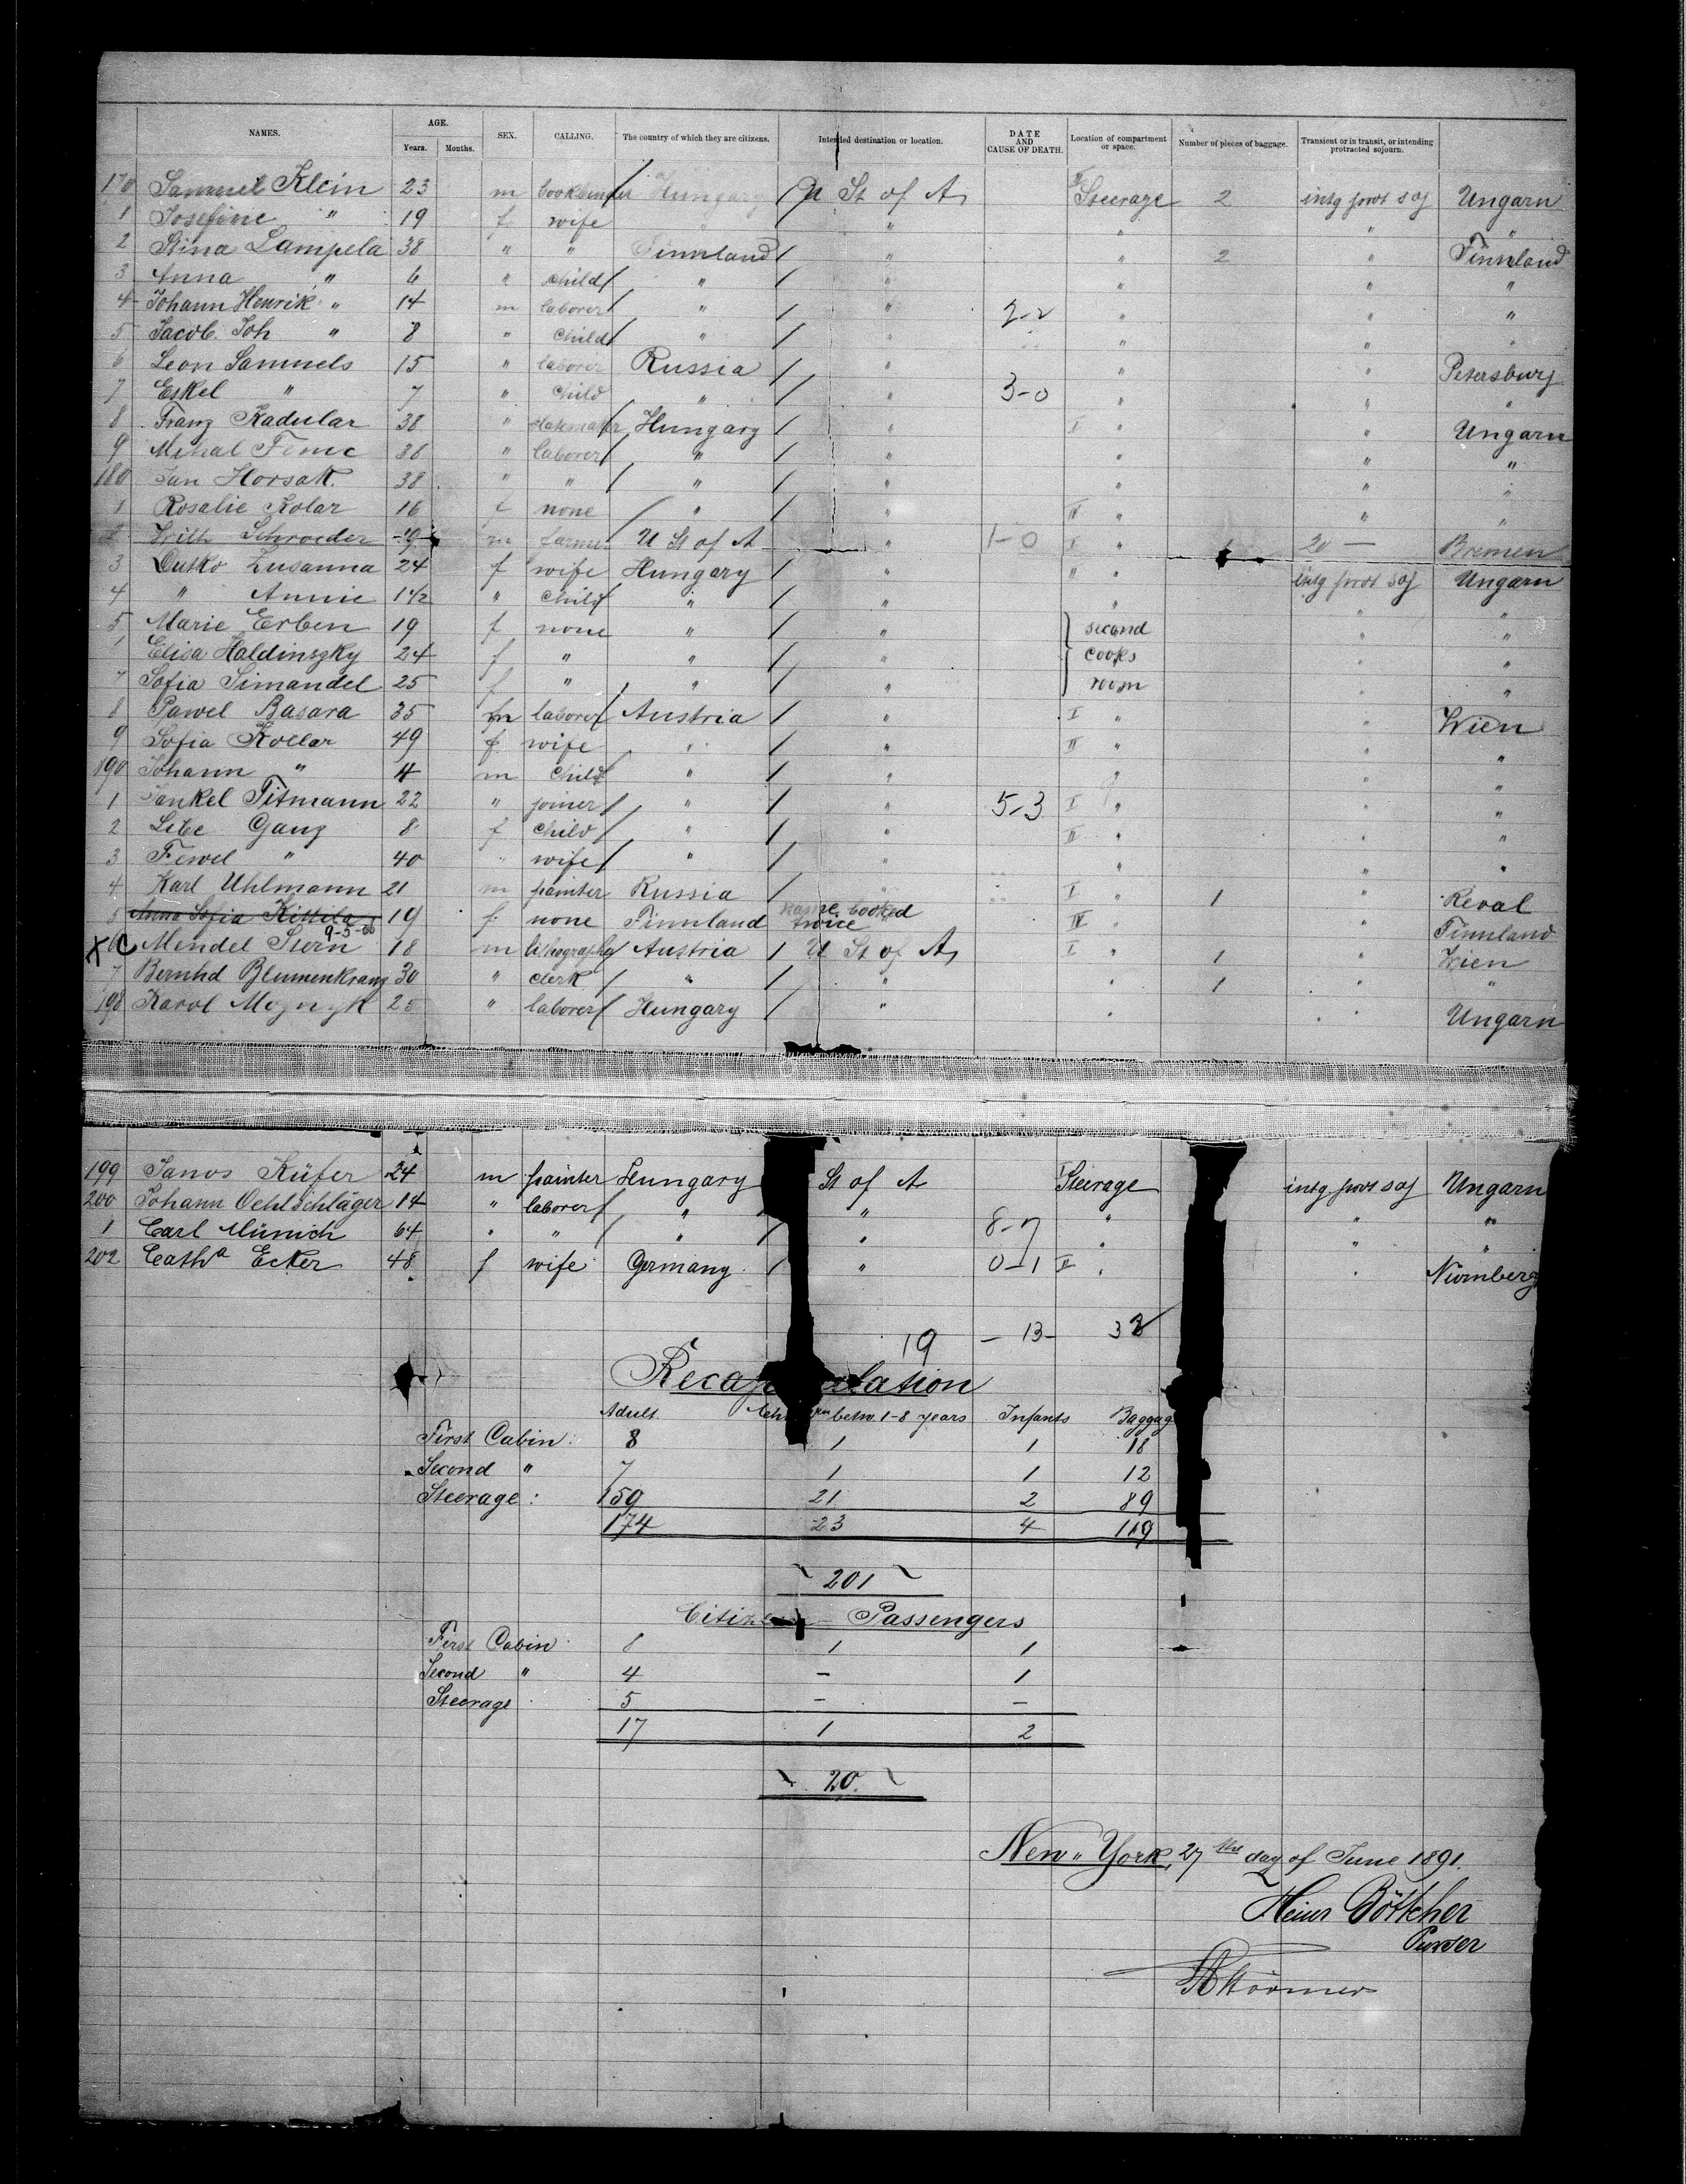 NAMES. AGE. Years. Months. SEX. CALLING. The country of which they are citizens. Intended destination or location. DATE AND CAUSE OF DEATH. Location of compartment or space. Number of pieces of baggage. Transient or in transit, or intending protracted sojourn.
170 Samuel Klein 23 m bookbinder Hungary U St of A II Steerage 2 intg prot soj Ungarn
1 Josefine " 19 f wife " " " "
2 Stina Lampela 38 " " Finnland " " 2 " Finnland
3 Anna " 6 " child " " " " "
4 Johann Henrik " 14 m laborer " " 2-2 " " "
5 Jacob. Joh " 8 " child " " " " "
6 Leon Samuels 15 " laborer Russia " " " Petersburg
7 Eskel " 7 " child " " 3-0 " " "
8 Franz Kadular 38 " Hungary " I " " Ungarn
9 Mihal 36 " laborer " " " " "
180 Jan Horsak 38 " " " " " " "
1 Rosalie Kolar 16 f none " " II " " "
2 Schroeder 19 m farmer U St of A " 1-0 I " 1 20 — Bremen
3 Dutko Zusanna 24 f wife Hungary " II " intg prot soj Ungarn
4 " Annie 1 1/2 " child " " " " "
5 Marie Erben 19 f none " " second " "
Elisa Haldinszky 24 f " " " cooks " "
7 Sofia Simandel 25 f " " " room " "
8 Pawel Basara 35 m laborer Austria " I " " Wien
9 Sofia Kollar 49 f wife " " II " " "
190 Johann " 4 m child " " " " "
1 Jankel Titmann 22 " joiner " " 5-3 I " " "
2 Libe Ganz 8 f child " " II " " "
3 Fewel " 40 " wife " " " " "
4 Karl Uhlmann 21 m painter Russia " I " 1 " Reval
5 Anna Sofia Kittila 19 f. none Finnland name booked twice II " Finnland
9-5-06
X C Mendel Stern 18 m lithographer Austria U St of A I " 1 " Wien
7 Bernhd Blumenkranz 30 " clerk " " 1 " "
198 Karol 25 " laborer Hungary " " " Ungarn
199 Janos Küfer 24 m painter Hungary St of A I Steerage intg prot soj Ungarn
200 Johann Oehlschläger 14 " laborer " " " " "
1 Carl Münich 64 " " " " 8-7 " " "
202 Cath^a Ecker 48 f wife Germany " 0-1 II " " Nürnberg
19 — 13 — 32
Recapitulation
Adult. betw. 1-8 years Infants Baggag
First Cabin: 8 1 1 18
Second " 7 1 1 12
Steerage: 159 21 2 89
174 23 4 119
201
Citizen – Passengers
First Cabin 8 1 1
Second " 4 – 1
Steerage 5 – –
17 1 2
20.
New York, 27 day of June 1891.
Heinr Böttcher
Purser